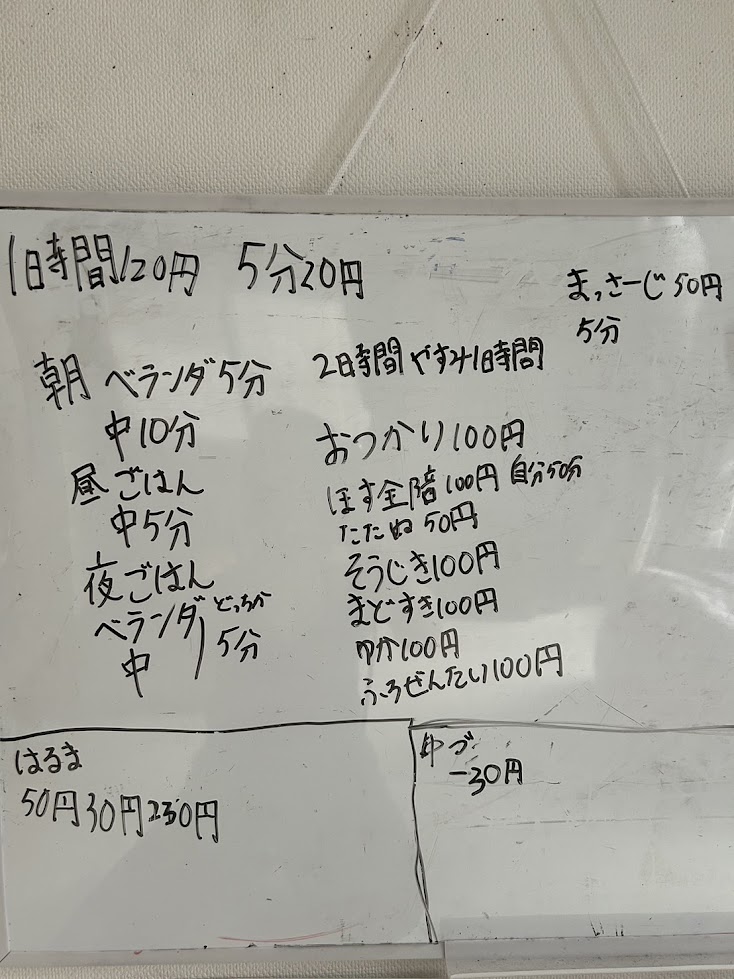 1日時間120円 5分20円
まっさーじ50円
5分
朝 ベランダ5分
中10分
昼ごはん
中5分
夜ごはん
ベランダ どっちか
中 5分
2日時間やすみ1日時間
おつかり100円
ほす全階100円 自分50分
たたぬ50円
そうじき100円
まどすき100円
ゆか100円
ふろぜんたい100円
はるま
50円30円230円
ゆづ
-30円